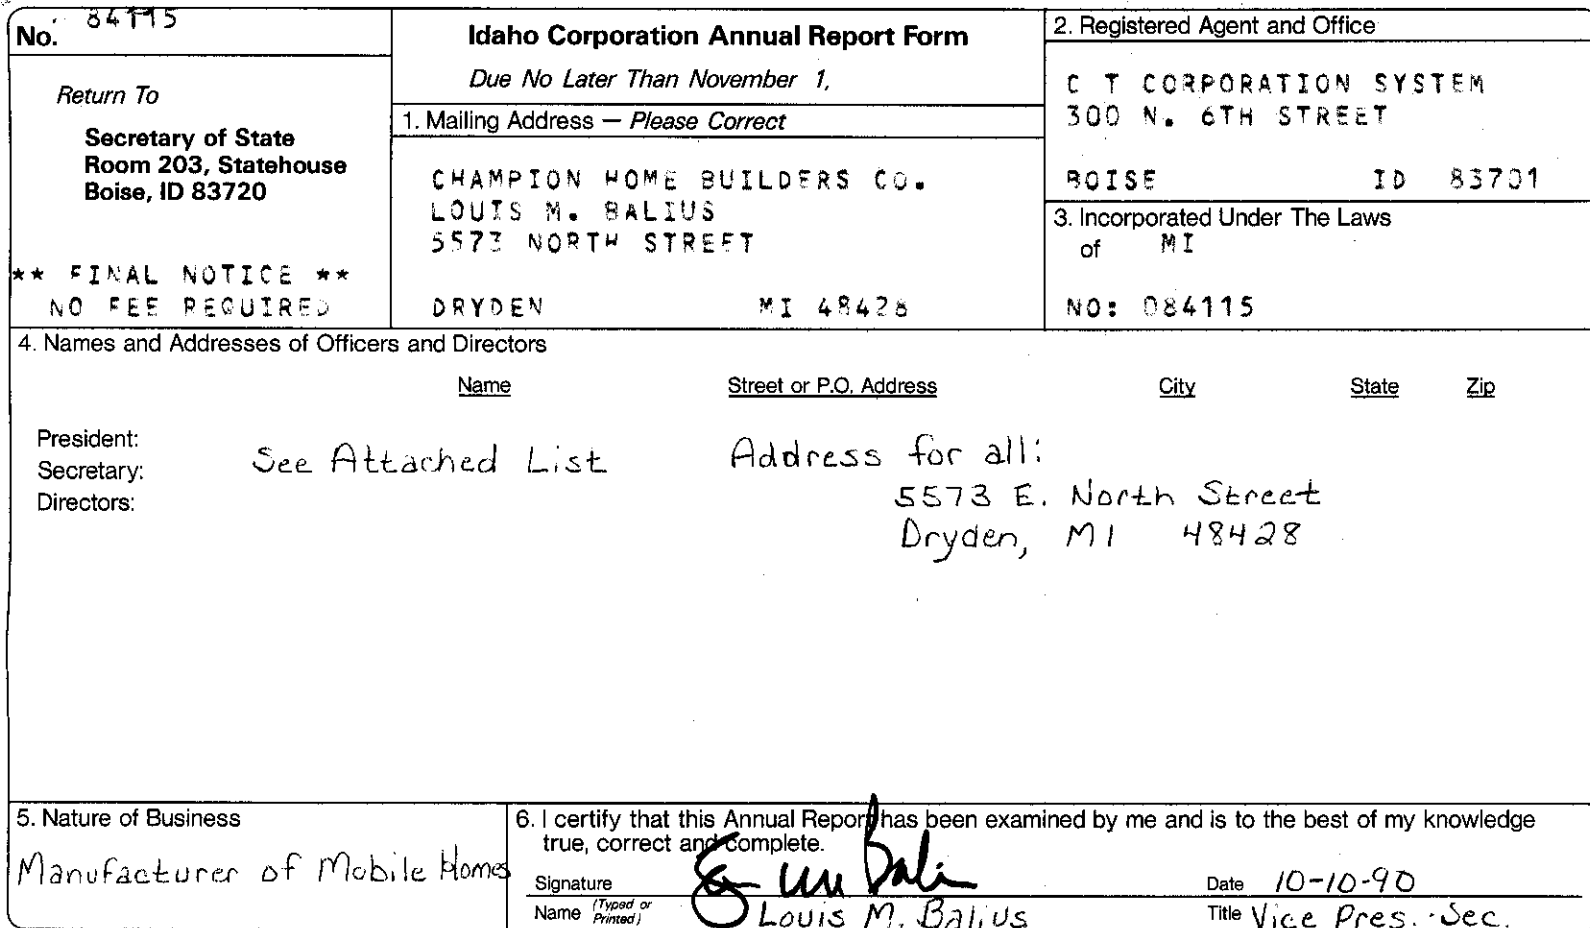 No. 84115
Return To
Secretary of State
Room 203, Statehouse
Boise, ID 83720
** FINAL NOTICE **
NO FEE REQUIRED
Idaho Corporation Annual Report Form
Due No Later Than November 1,
1. Mailing Address — Please Correct
CHAMPION HOME BUILDERS CO.
LOUIS M. BALIUS
5573 NORTH STREET
DRYDEN MI 48428
2. Registered Agent and Office
C T CORPORATION SYSTEM
300 N. 6TH STREET
BOISE ID 83701
3. Incorporated Under The Laws
of MI
NO: 084115
4. Names and Addresses of Officers and Directors
Name Street or P.O. Address City State Zip
President:
Secretary:
Directors:
See Attached List
Address for all:
5573 E. North Street
Dryden, MI 48428
5. Nature of Business
Manufacturer of Mobile Homes
6. I certify that this Annual Report has been examined by me and is to the best of my knowledge
true, correct and complete.
Signature Date 10-10-90
Name (Typed or Printed) Louis M. Balius Title Vice Pres. - Sec.